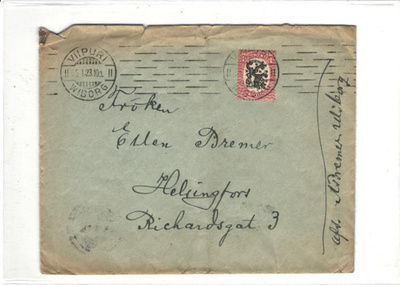 VIIPURI
WIBORG
Fröken
Ellen Bremer
Helsingfors
Richardsgat 3
Bremer Wiborg